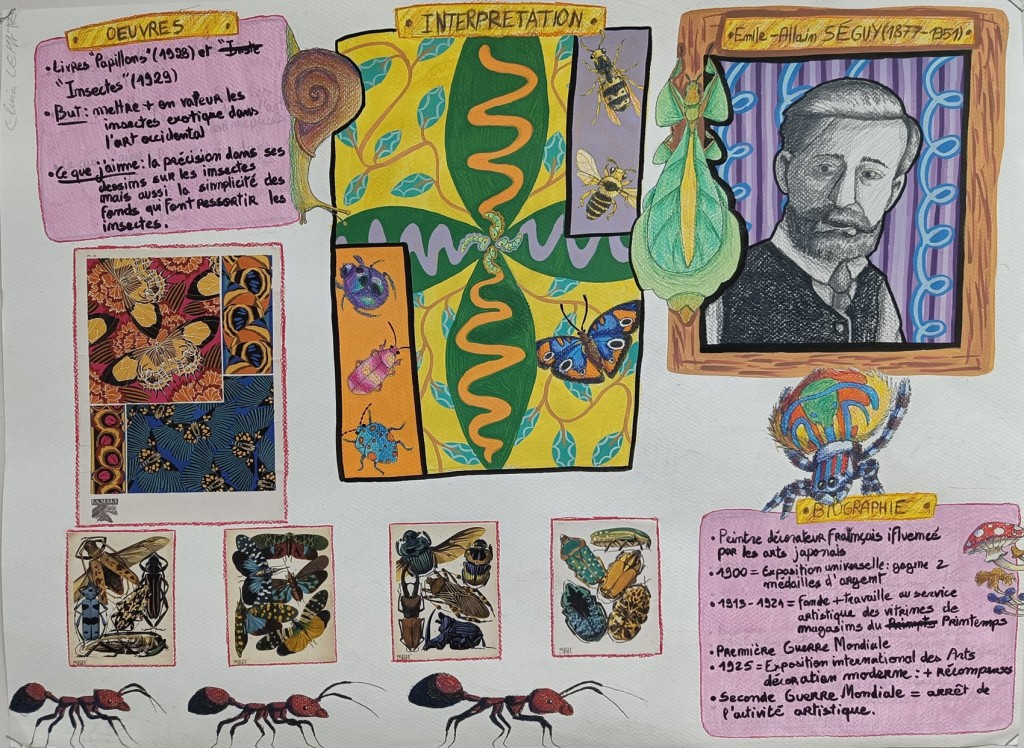 OEUVRES
• Livres "Papillons" (1928) et "Inste
"Insectes" (1929)
• But : mettre + en valeur les
insectes exotique dans
l'art occidental
• Ce que j'aime : la précision dans ses
dessins sur les insectes
mais aussi la simplicité des
fonds qui font ressortir les
insectes.
INTERPRETATION
Emile-Allain SEGUY (1877-1951)
BIOGRAPHIE
• Peintre décorateur français ifluencé
par les arts japonais
• 1900 = Exposition universelle : gagne 2
médailles d'argent
• 1913-1921 = fonde + travaille au service
artistique des vitrines de
magasins du Printemps
• Première Guerre Mondiale
• 1925 = Exposition international des Arts
décoration moderne : + récompenses
• Seconde Guerre Mondiale = arrêt de
l'activité artistique.